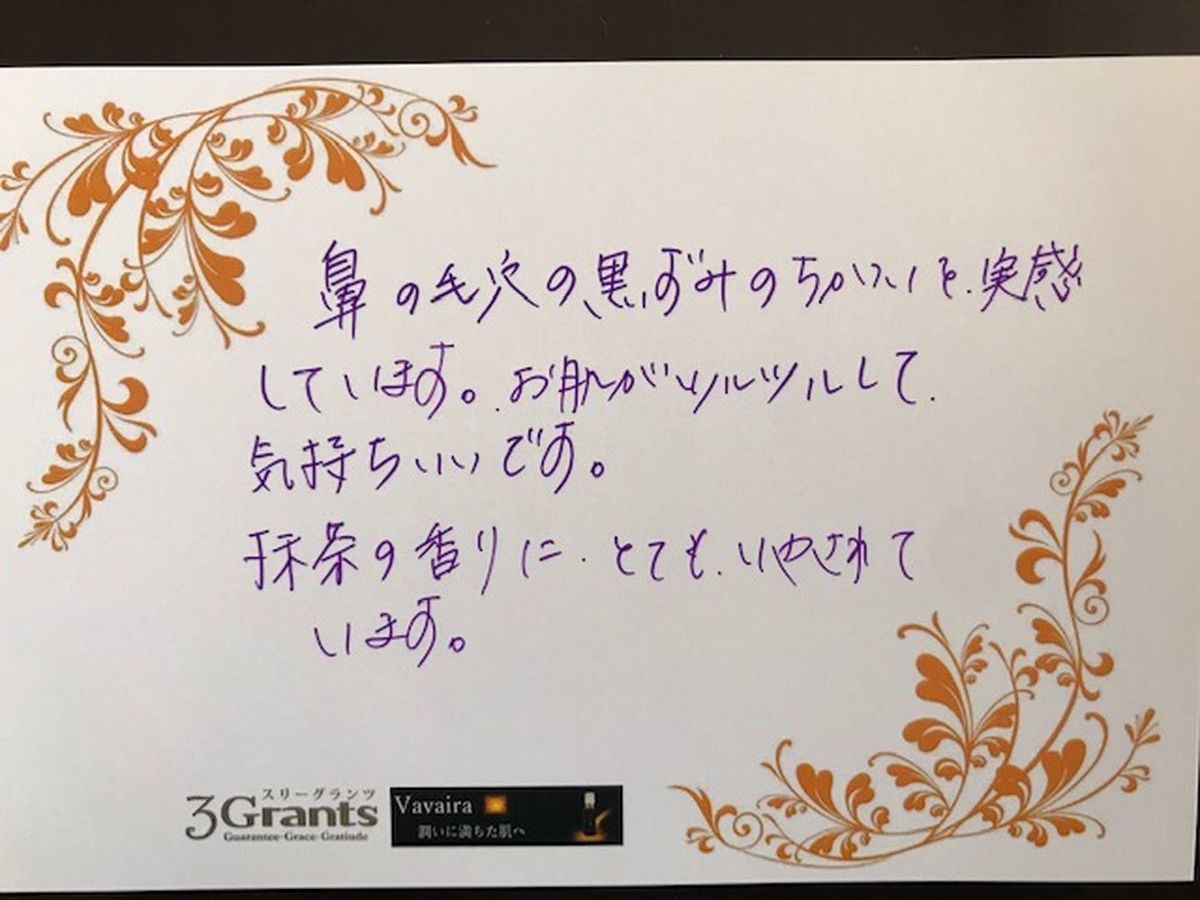 鼻の毛穴の黒ずみのちがいを、実感
しています。お肌がツルツルして、
気持ちいいです。
抹茶の香りに、とても、いやされて
います。
スリーグランツ
3Grants
Guarantee·Grace·Gratitude
Vavaira
潤いに満ちた肌へ